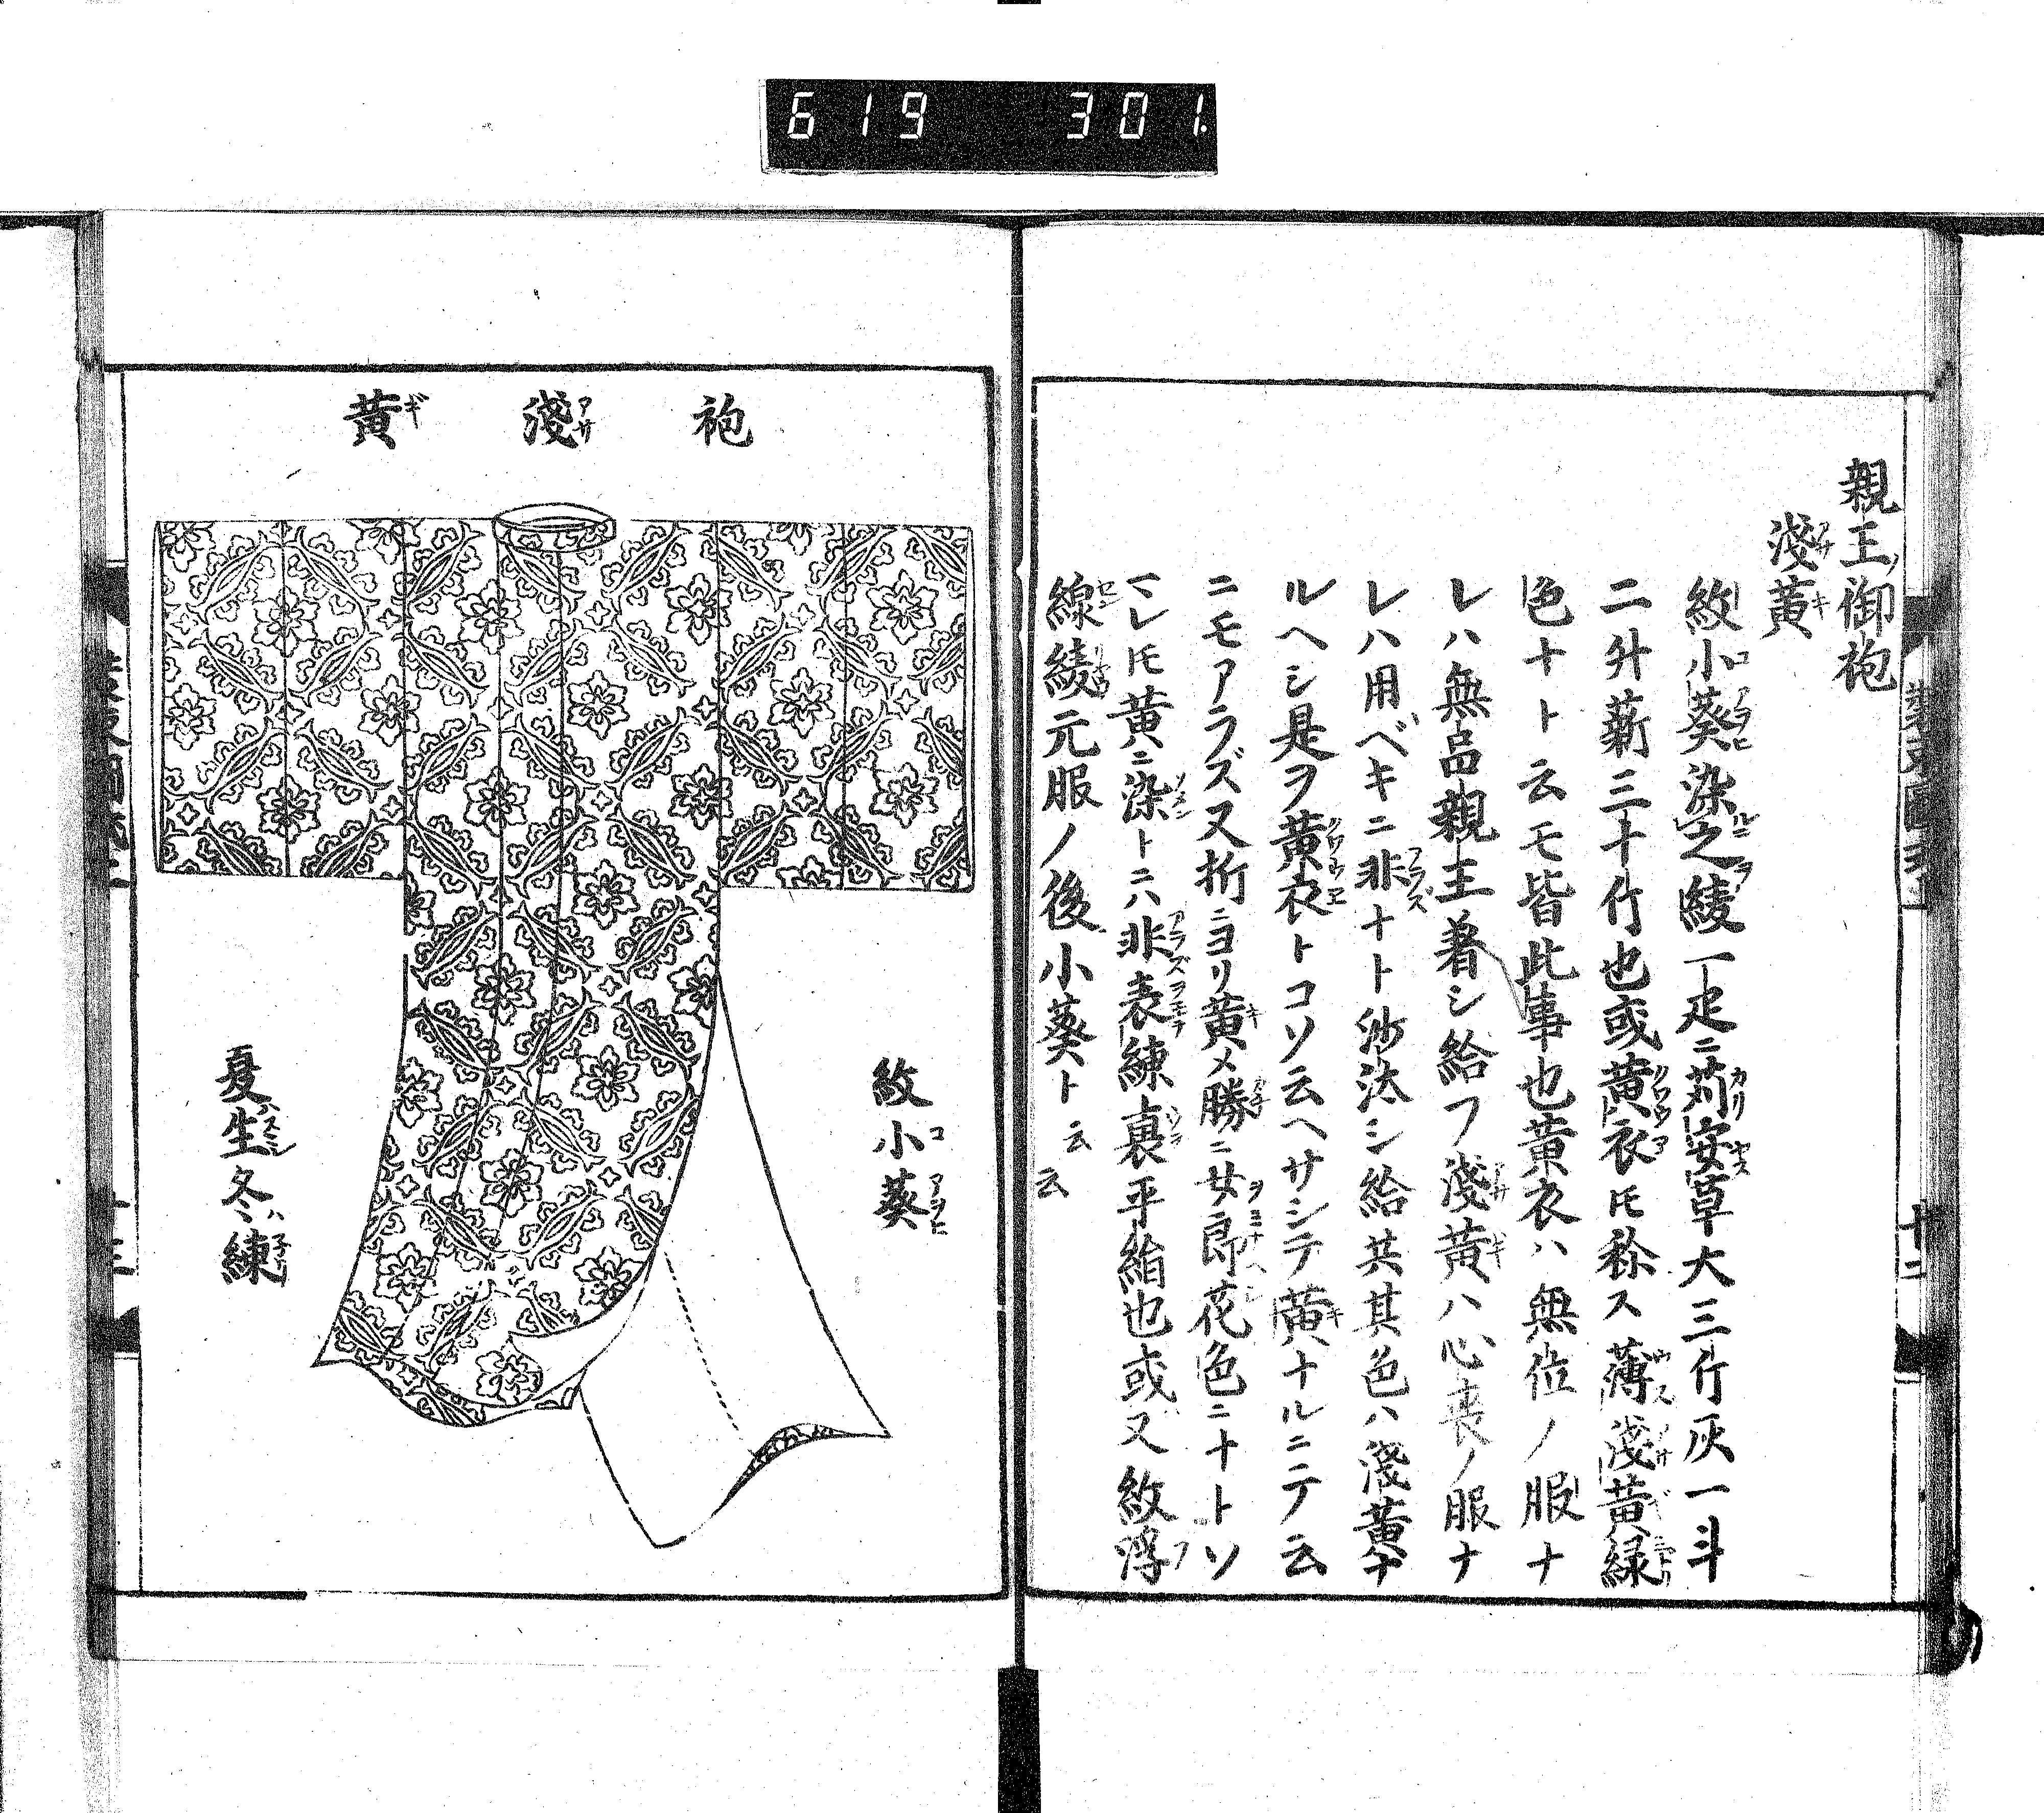 619 301.
親王ノ御袍
淺黄
紋小葵染之綾一疋ニ苅安草大三斤灰一斗
二升薪三十斤也或黄衣ㇳモ稱ス薄淺黄緑
色ナト云モ皆此事也黄衣ハ無位ノ服ナ
レハ無品親王着シ給フ淺黄ハ心喪ノ服ナ
レハ用ベキニ非ナト沙汰シ給共其色ハ淺黄ナ
ルヘシ是ヲ黄衣トコソ云ヘサシテ黄ナルニテ云
ニモアラズ又桁ニヨリ黄メ勝ニ女郎花色ニナトソ
レㇳモ黄ニ染トニハ非表練裏平絹也或又紋浮
線綾元服ノ後小葵ト云云
十二
袍淺黄
紋小葵
夏ハ生冬ハ練